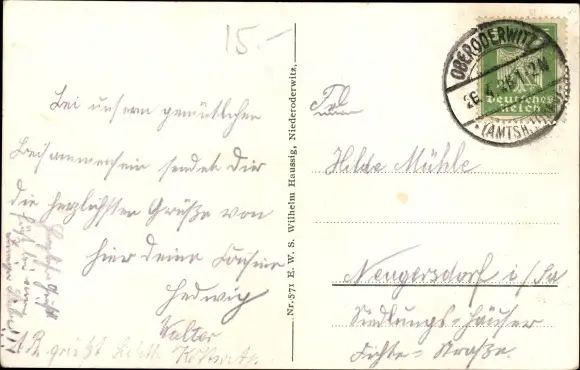 15.-
Bei unserm gemütlichen
Beisammensein sendet dir
die herzlichsten Grüße von
hier deine Cousine
Hedwig
Walter
grüßt
Nr. 571 E. W. S. Wilhelm Haussig, Niederoderwitz.
OBERODERWITZ
26.4.26. 1-2 N
(AMTSH.
Deutsches
Reich
Frl.
Hilde Mühle
Neugersdorf i/Sa
Siedlungs-Häuser
Fichte-Straße.